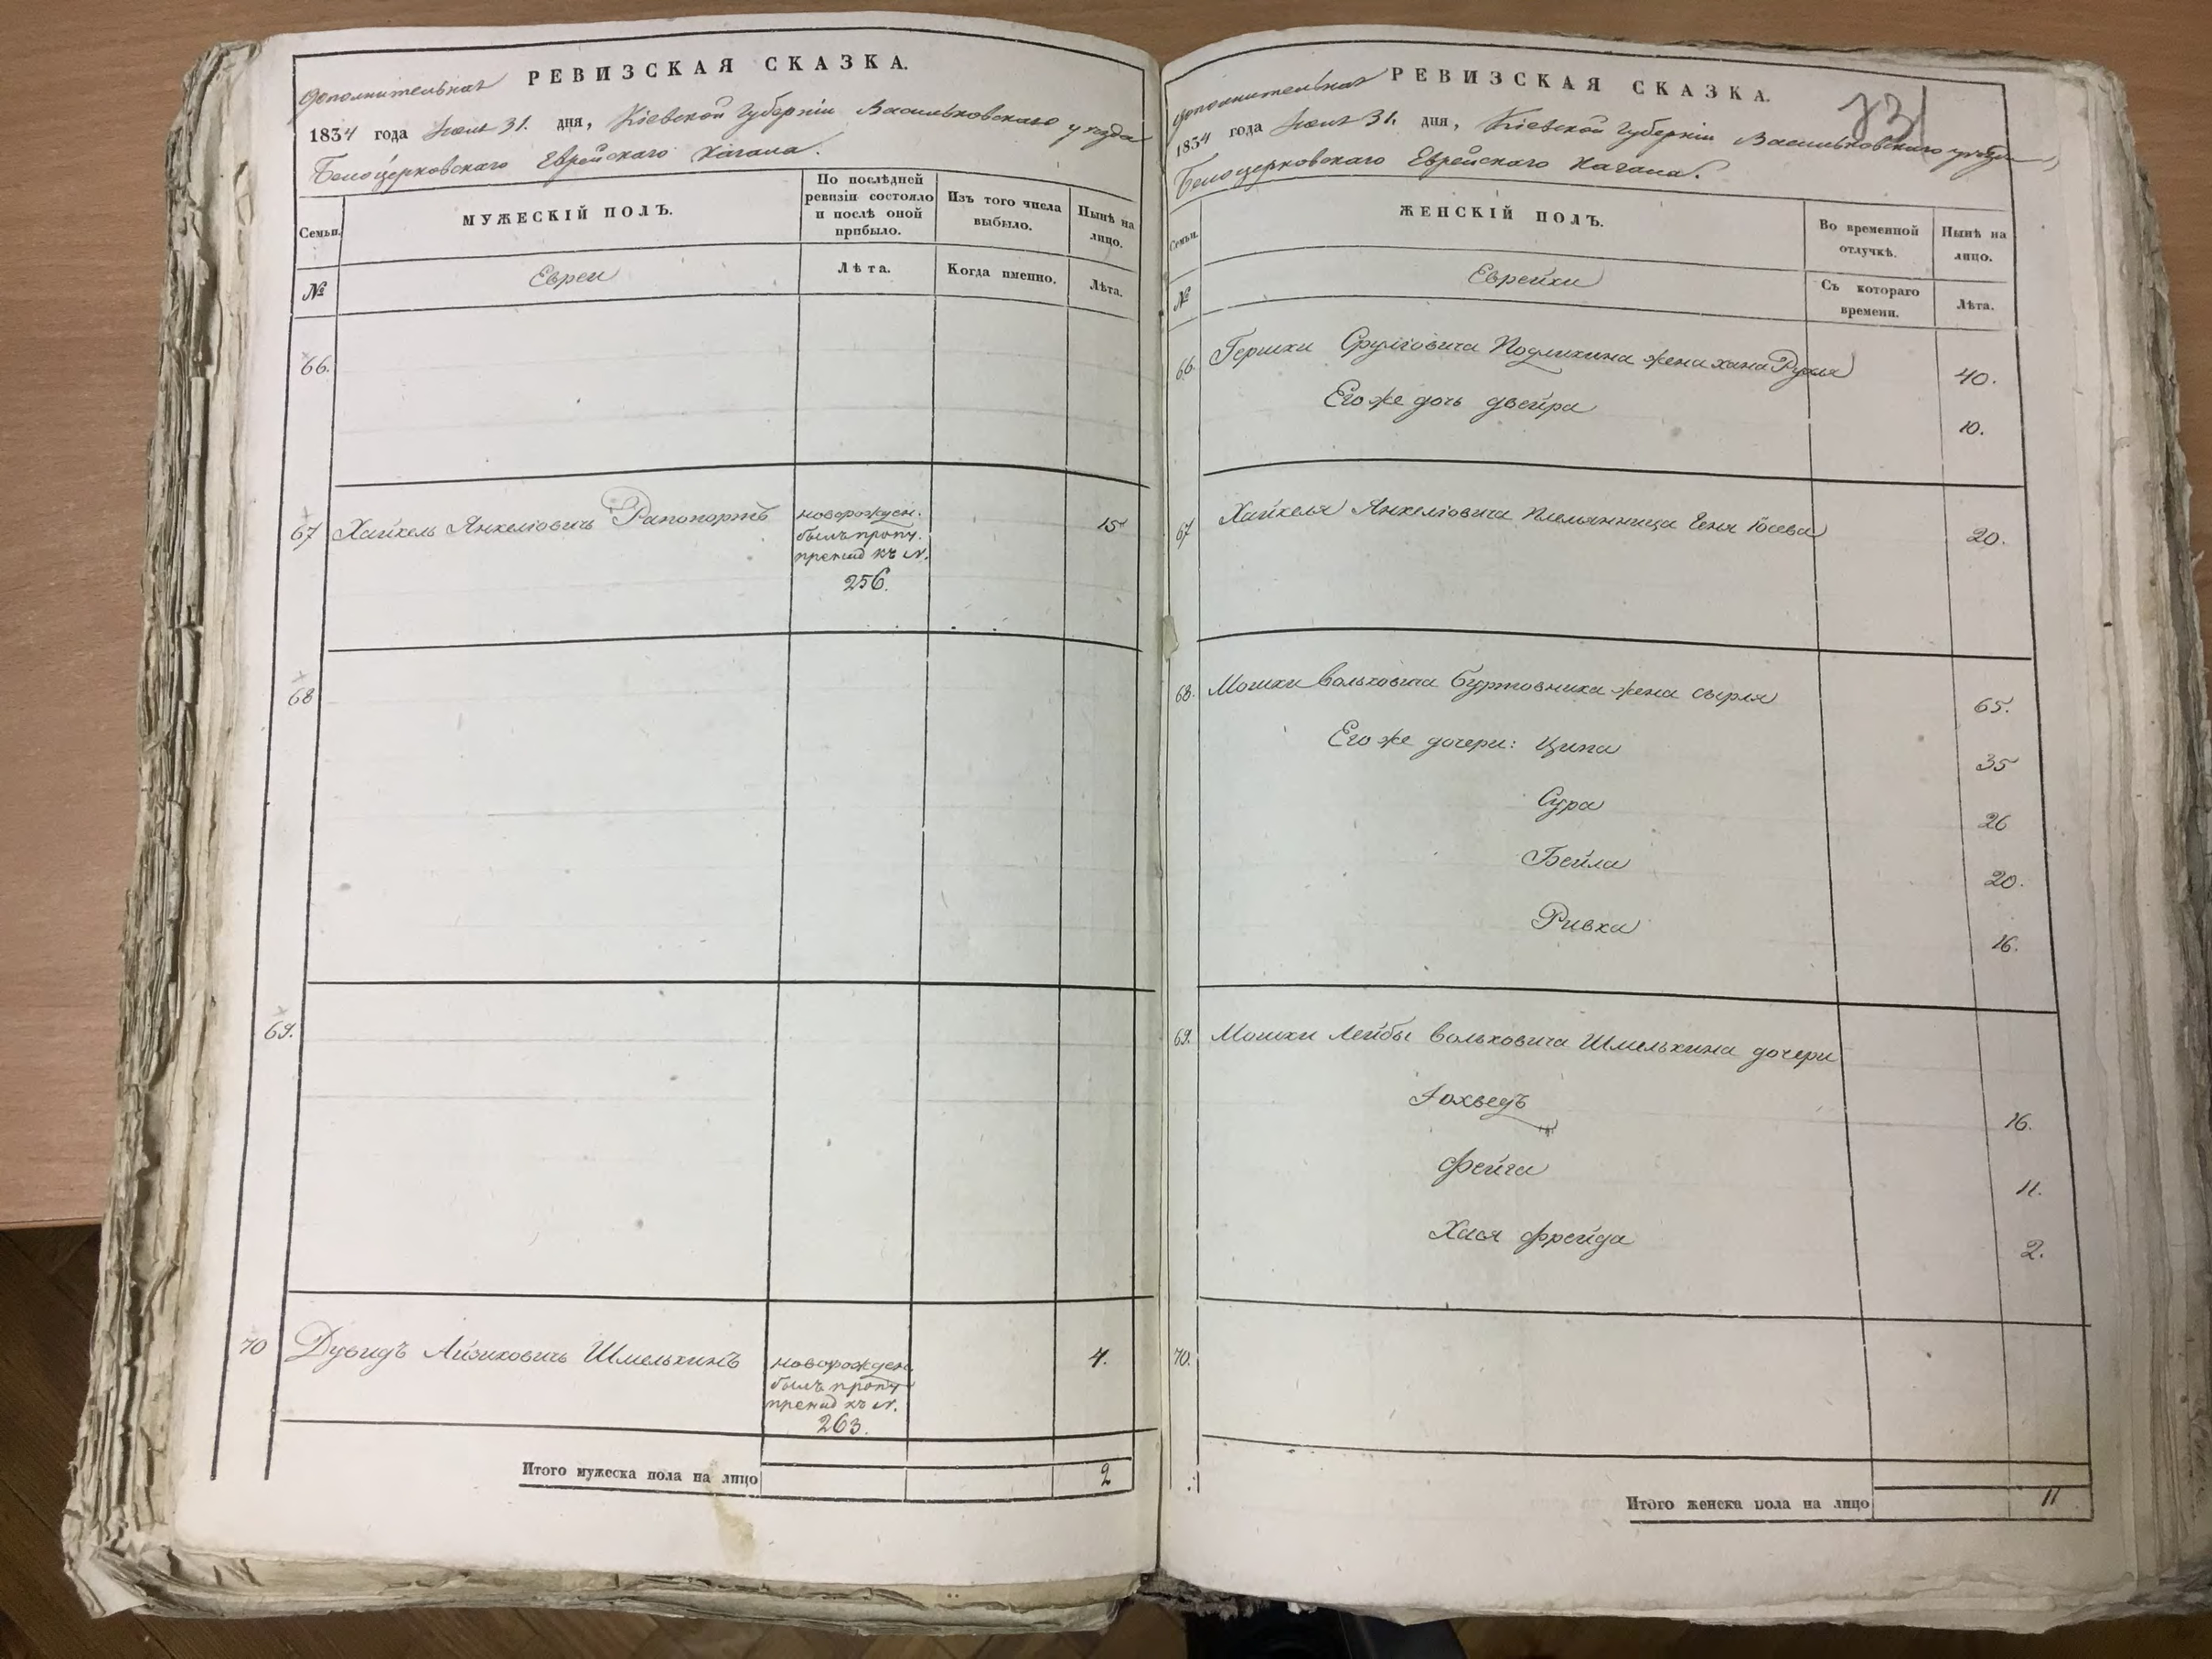 РЕВИЗСКАЯ СКАЗКА.
дополнительная
1834 года Июля 31. дня, Кіевской Губерніи Васильковскаго уезда
Белоцерковскаго Еврейскаго Кагала.
Семьи.
МУЖЕСКІЙ ПОЛЪ.
По послѣдней
ревизіи состояло
и послѣ оной
прибыло.
Изъ того числа
выбыло.
Нынѣ на
лицо.
№
Евреи
Лѣта.
Когда именно.
Лѣта.
66.
67 Хайкель Янкеліовичъ Рапопортъ новорожден. 15
былъ проп.
къ №.
256.
68
69.
70 Дувидъ Айзиковичъ Шмелькинъ новорожден. 4.
былъ проп.
къ №.
263.
Итого мужеска пола на лицо 2
РЕВИЗСКАЯ СКАЗКА.
731
дополнительная
1834 года Июля 31. дня, Кіевской Губерніи Васильковскаго уезда
Белоцерковскаго Еврейскаго Кагала.
Семьи.
ЖЕНСКІЙ ПОЛЪ.
Во временной
отлучкѣ.
Нынѣ на
лицо.
№
Еврейки
Съ котораго
времени.
Лѣта.
66. Гершки Сруліовича жена хана Рухля 40.
Его же дочь двейра 10.
67 Хайкеля Янкеліовича племянница Геня Іосева 20.
68. Мошки Вольковича Буртовника жена сырля 65.
Его же дочери: Ципа 35
Сура 26
Бейла 20.
Ривка 16.
69. Мошки Лейбы Вольковича Шмелькина дочери
Іохведъ 16.
фейга 11.
Хася фрейда 2.
70.
Итого женска пола на лицо 11